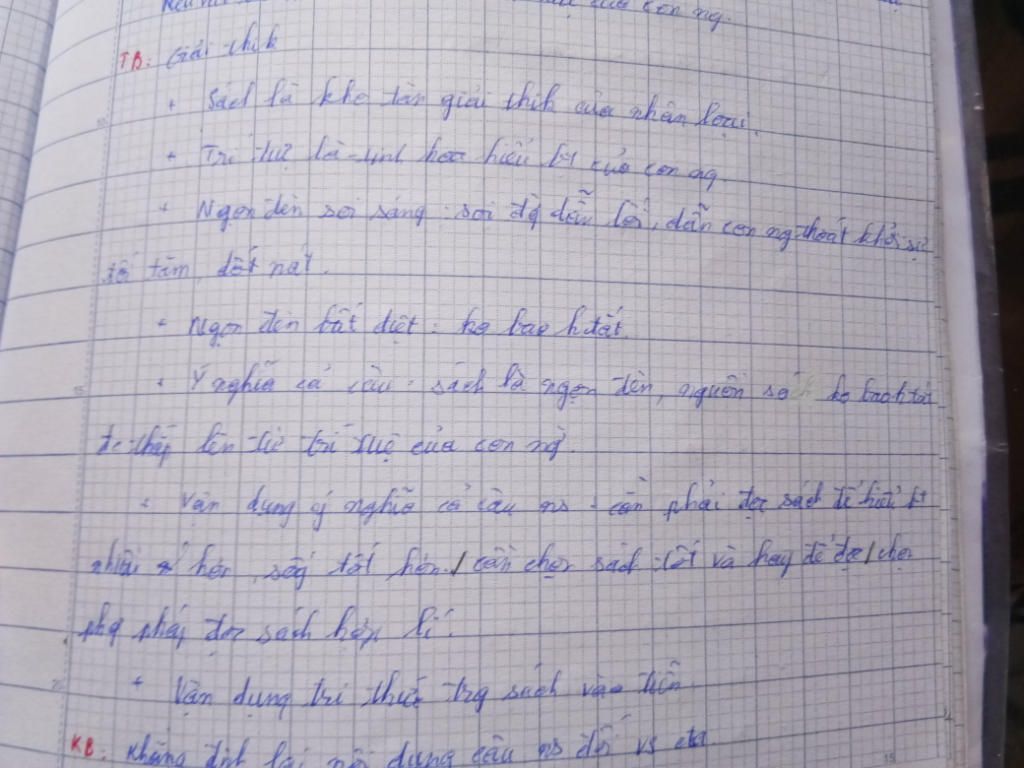 của con ng.
TB: Giải thik
+ Sách là kho tàn giải thik của nhân loại.
+ Trí tuệ là tinh hoa hiểu bt của con ng.
+ Ngọn đèn soi sáng: soi đg dẫn lối, dẫn con ng thoát khỏi sự
tối tăm, dốt nát.
+ Ngọn đèn bất diệt: ko bao h tắt.
+ Ý nghĩa cả câu: sách là ngọn đèn, nguồn ko bao h tắt
đc thắp lên từ trí tuệ của con ng.
+ Vận dụng ý nghĩa cả câu ns: cần phải đọc sách để hiểu bt
nhiều hơn, sốg tốt hơn / cần chọn sách tốt và hay để đọc / chọn
phg pháp đọc sách hợp lí.
+ Vận dụng tri thức trg sách vào
KB: Khẳng địh lại nội dung câu ns đối vs